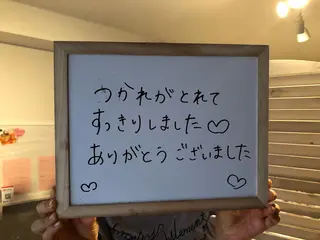 つかれがとれて
すっきりしました♡
ありがとうございました
♡ ♡